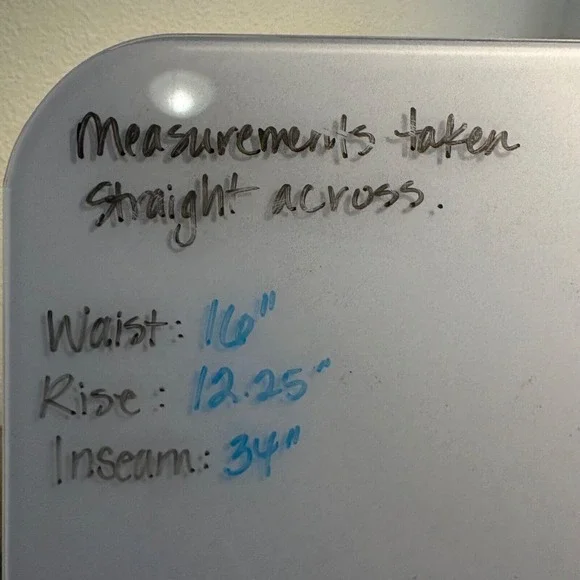 Measurements taken
Straight across.
Waist: 16"
Rise: 12.25"
Inseam: 34"